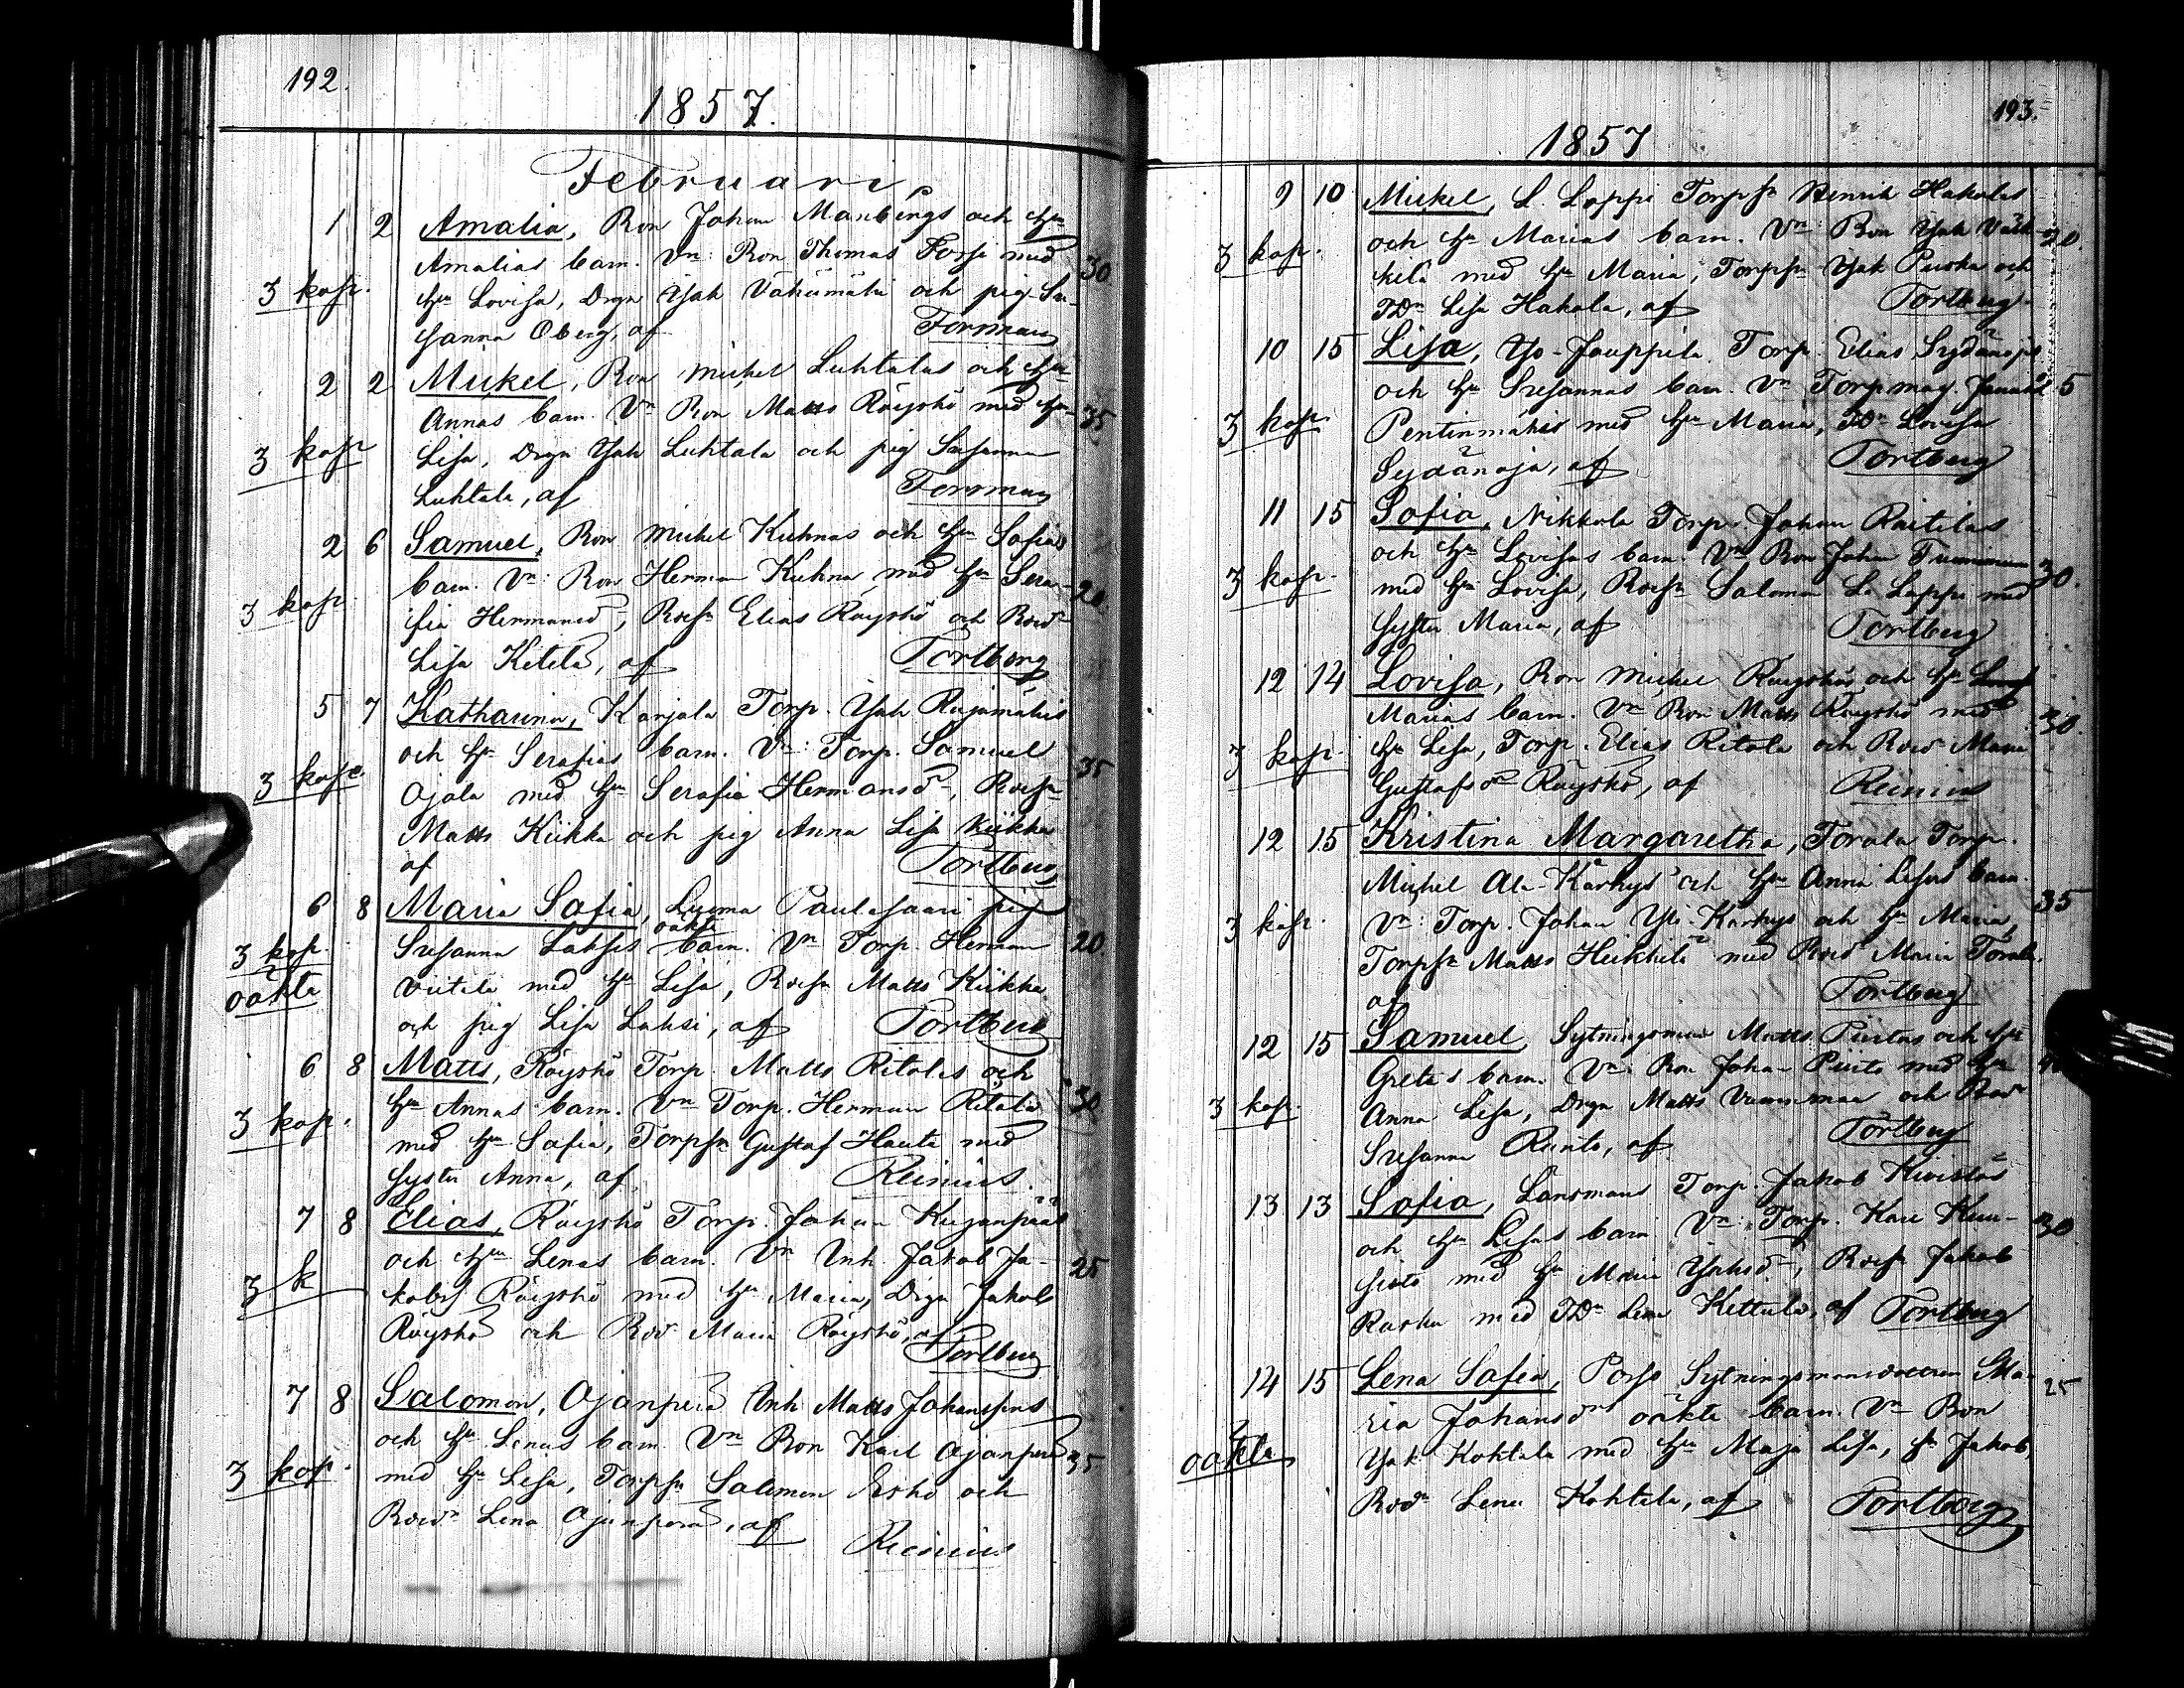 192.
1857.
Februari
1 2 Amalia, Bon Johan Manbergs och Hu
Amalias barn. Vn: Bon Thomas Forse med 30
3 kop. Hu Lovisa, Drgn Isak Vähämäki och pig. Su-
sanna Oberg, af Forsman
2 2 Mickel, Bon Mickel Luhtalas och Hu
Annas barn. Vn Bon Matts Röyskö med Hu 35
3 kop Lisa, Drgn Isak Luhtala och pig Susanna
Luhtala, af Forsman
2 6 Samuel, Bon Mickel Kuhnas och Hu Sofias
barn. Vn: Bon Herman Kuhna med Hu Sera- 20.
3 kop. fia Hermansd, Bosn Elias Röyskö och Bosd
Lisa Ketela, af Portberg
5 7 Katharina, Karjala Torp. Isak Rajamäkis
och Hu Serafias barn. Vn: Torp. Samuel 35
3 kop. Ojala med Hu Serafia Hermansd, Bosn
Matts Kiikka och pig Anna Lisa Kiikka
af Portberg
6 8 Maria Sofia, Luoma Paulasaari pig
oäkta
Susanna Lahsis barn. Vn Torp. Herman 20.
3 kop. Viitala med Hu Lisa, Bosn Matts Kiikka
oäkta
och pig Lisa Laksi, af Portberg
6 8 Matts, Röyskö Torp. Matts Ritalas och
Hu Annas barn. Vn Torp. Herman Ritala 30
3 kop. med Hu Sofia, Torpsn Gustaf Hauta med
syster Anna, af Reinius.
7 8 Elias, Röyskö Torp. Johan Kujanpääs
och Hu Lenas barn. Vn Inh. Jakob Ja- 25
3 k kobss Röyskö med Hu Maria, Drgn Jakob
Röyskö och Bosd Maria Röyskö, af
Portberg
7 8 Salomon, Ojanperä Inh Matts Johanssons
och Hu Lenas barn Vn Bon Karl Ojanperä 35
3 kop. med Hu Lisa, Torpsn Salomon Esko och
Bosdr Lena Ojanperä, af
Reinius
193.
1857
9 10 Mickel, L. Lappi Torpsn Henrik Hakalas
och Hu Marias barn. Vn: Bon Isak Väth- 20.
3 kop. kilä med Hu Maria, Torpsn Isak Puska och
TDr Lisa Hakala, af Portberg
10 15 Lisa, Yo-Jouppila Torp. Elias Sydänojas
och Hu Susannas barn. Vn Torp mag. 25
3 kop. Pentinmäkis med Hu Maria, TDr Lovisa
Sydänoja, af Portberg
11 15 Sofia, Nikkola Torp. Johan Raitilas
och Hu Lovisas barn. Vn Bon Johan 30.
3 kop. med Hu Lovisa, Bosn Salomon L. Lappi med
syster Maria, af Portberg
12 14 Lovisa, Bon Mickel Röyskös och Hu
Marias barn. Vn Bon Matts Röyskö med 30.
3 kop. Hu Lisa, Torp. Elias Ritola och Bosd Maria
Gustafsdr Röyskö, af Reinius
12 15 Kristina Margaretha, Torala Torp.
Mickel Ala-Karhys och Hu Anna Lisas barn. 35
3 kop. Vn: Torp. Johan Yli-Karhys och Hu Maria,
Torpsn Matts Heikkilä med Bosd Maria Torala.
af Portberg
12 15 Samuel, Sytningsman Matts Piirtos och Hu
Gretas barn. Vn. Bon Johan Piirto med Hu
3 kop. Anna Lisa, Drgn Matts Vuorenmaa och Bosd
Susanna Runto, af Portberg
13 13 Sofia, Länsmans Torp. Jakob Kivistös
och Hu Lisas barn. Vn: Torp. Karl Kuu- 30
sisto med Hu Maria Isaksd, Bosn Jakob
Rasku med TDr Lena Kettula, af Portberg
14 15 Lena Sofia, Porso Sytningsmansdottren Ma- 25
ria Johansdr oäkta barn. Vn Bon
oäkta Isak Kohtala med Hu Maja Lisa, sn Jakob,
Bosdr Lena Kohtala, af Portberg